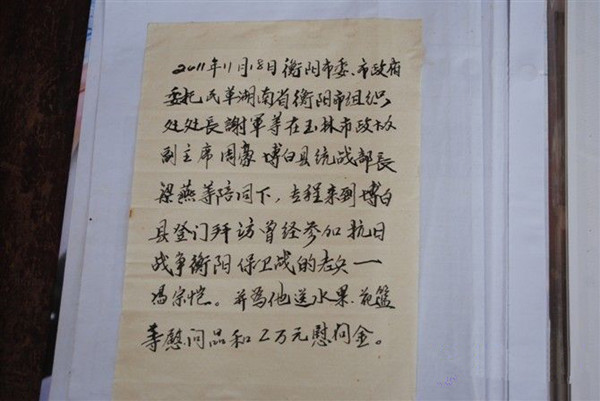 2011年11月18日衡阳市委、市政府
委托民革湖南省衡阳市组织
处处長謝軍等在玉林市政协
副主席周豪 博白县统战部長
梁燕等陪同下，专程来到博白
县登门拜访曾经参加抗日
战争衡阳保卫战的老兵一
馮宗恺。并為他送水果、花篮
等慰问品和2万元慰问金。